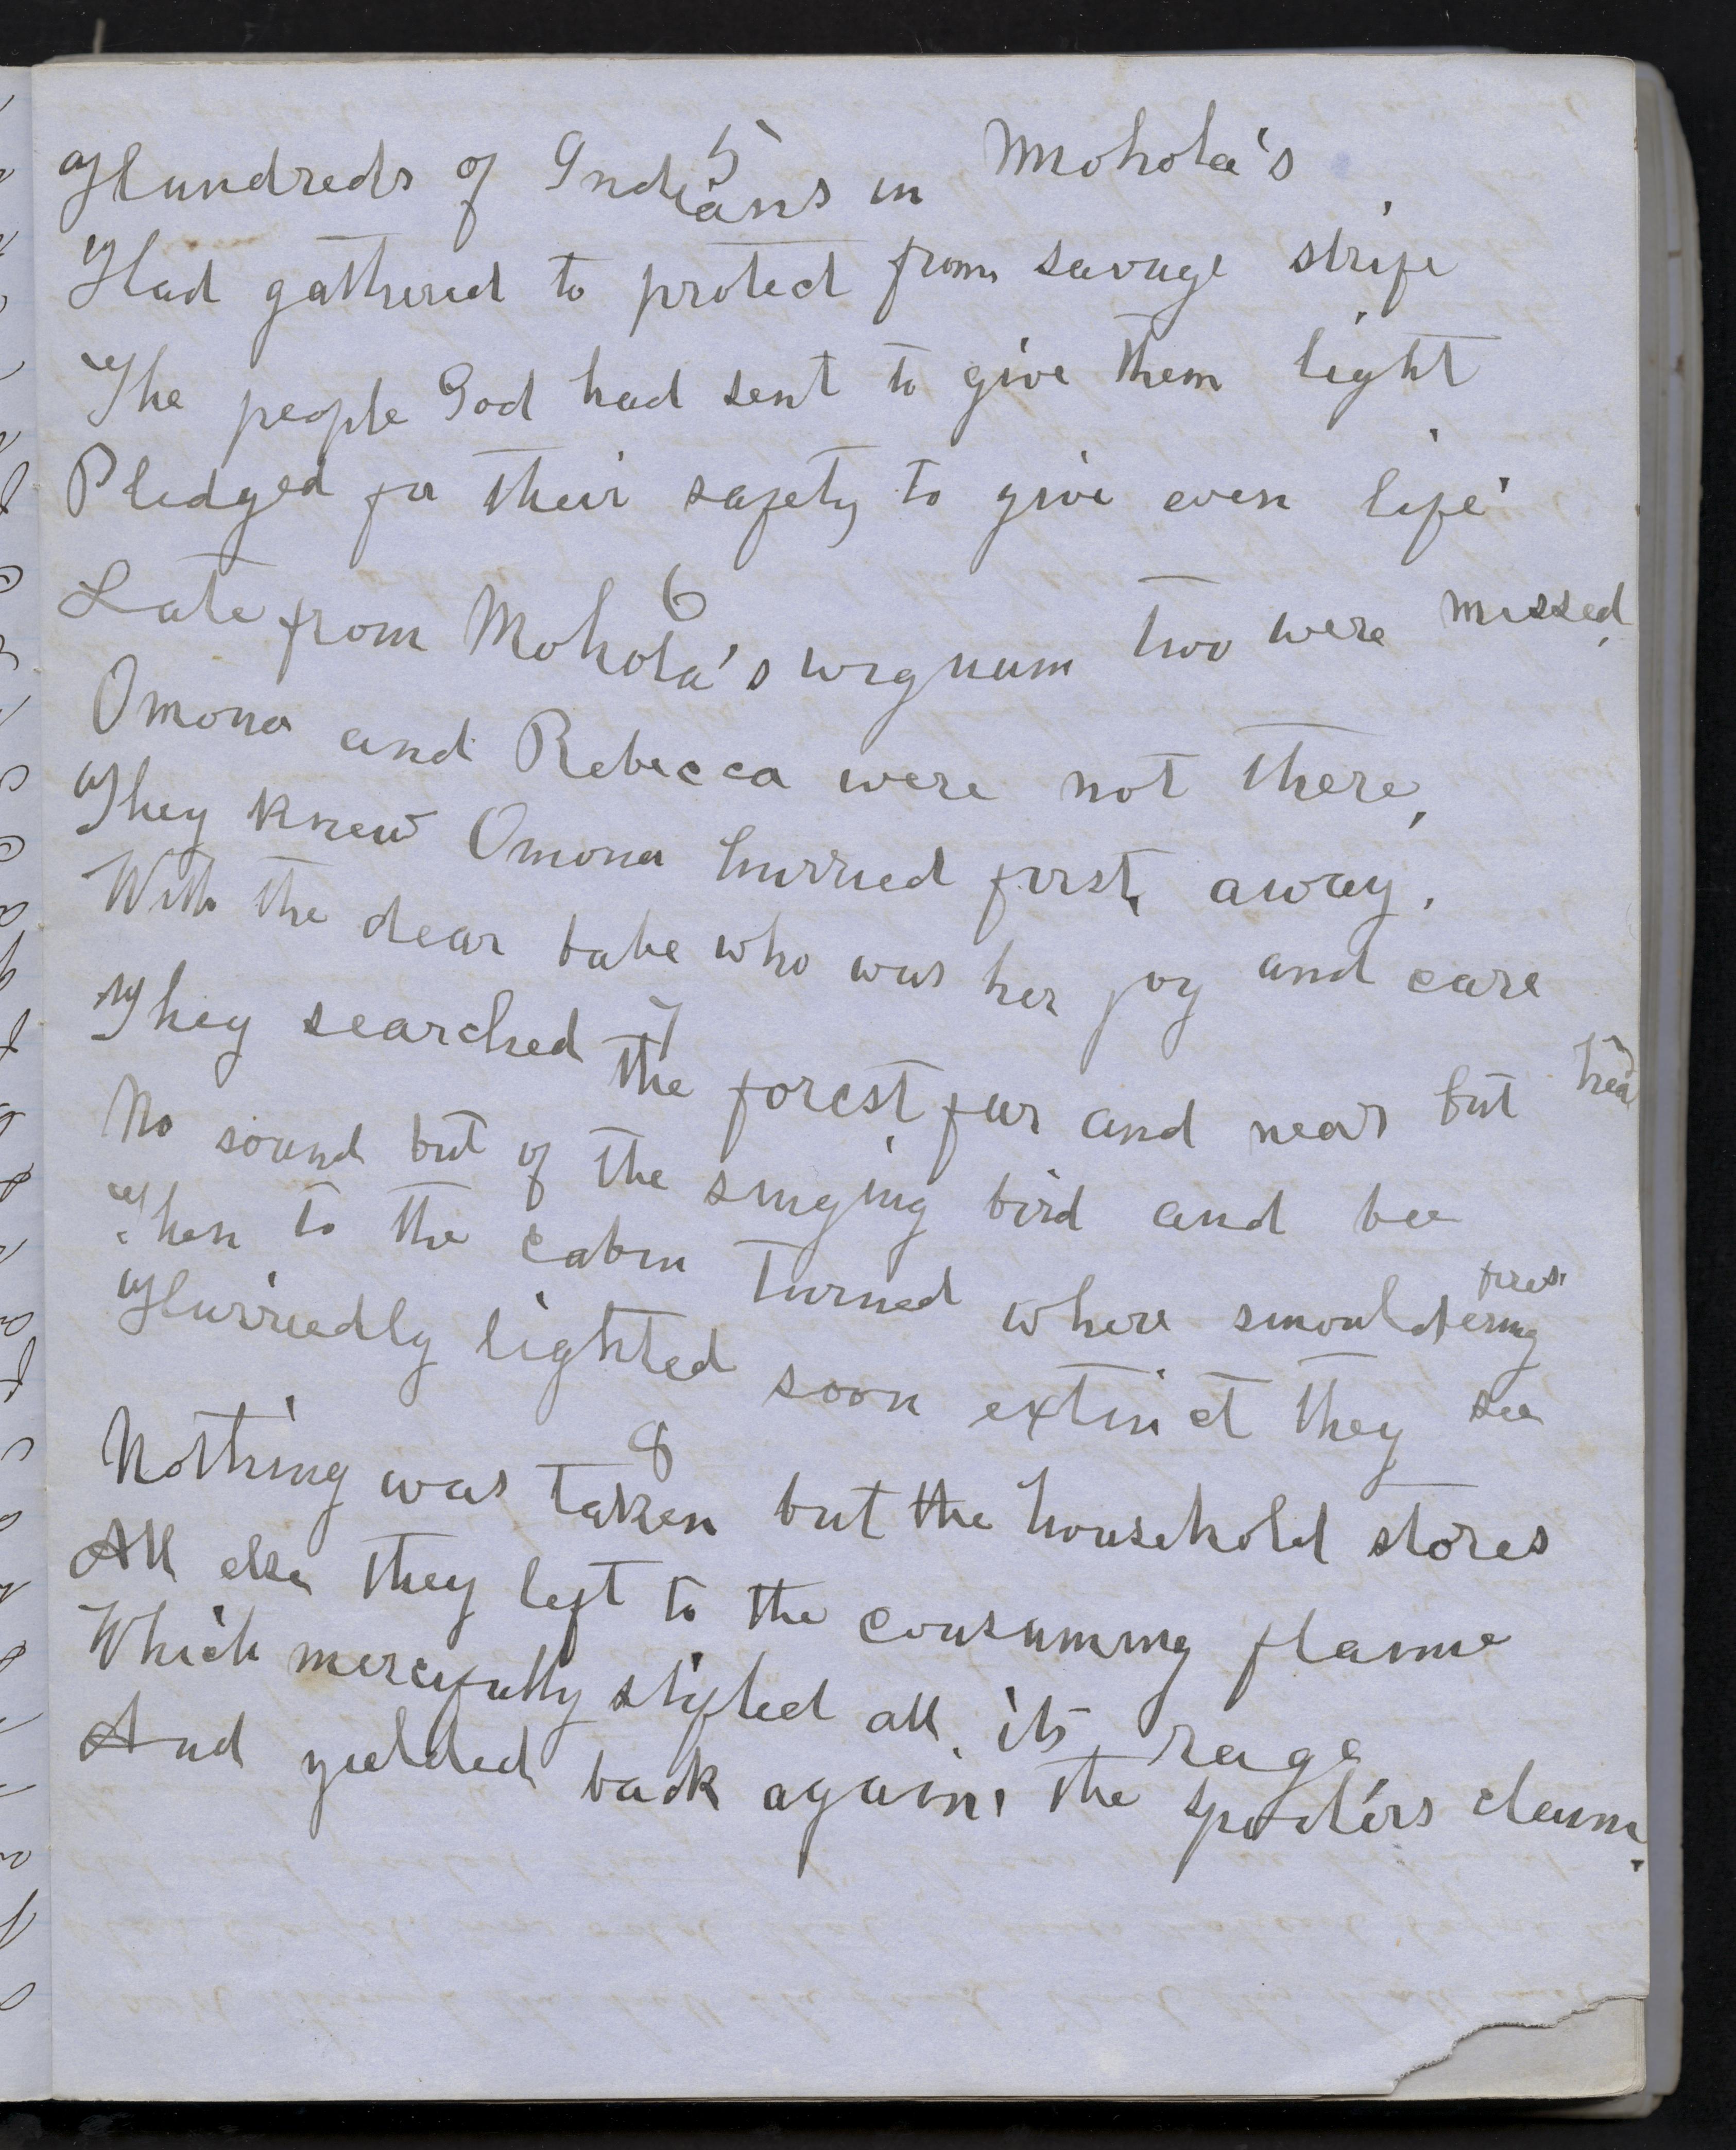 5
Hundreds of Indians in Mohola's
Had gathered to protect from savage strife
The people God had sent to give them light
Pledged for their safety to give even life
6
Late from Mohola's wigwam two were missed,
Omona and Rebecca were not there,
They knew Omona hurried first, away.
With the dear babe who was her joy and care
7
They searched the forest far and near but
No sound but of the singing bird and bee
Then to the cabin turned where smouldering fires
Hurriedly lighted soon extinct they see
8
Nothing was taken but the household stores
All else they left to the consuming flame
Which mercifully stifled all its rage
And yielded back again the spoilers claim.